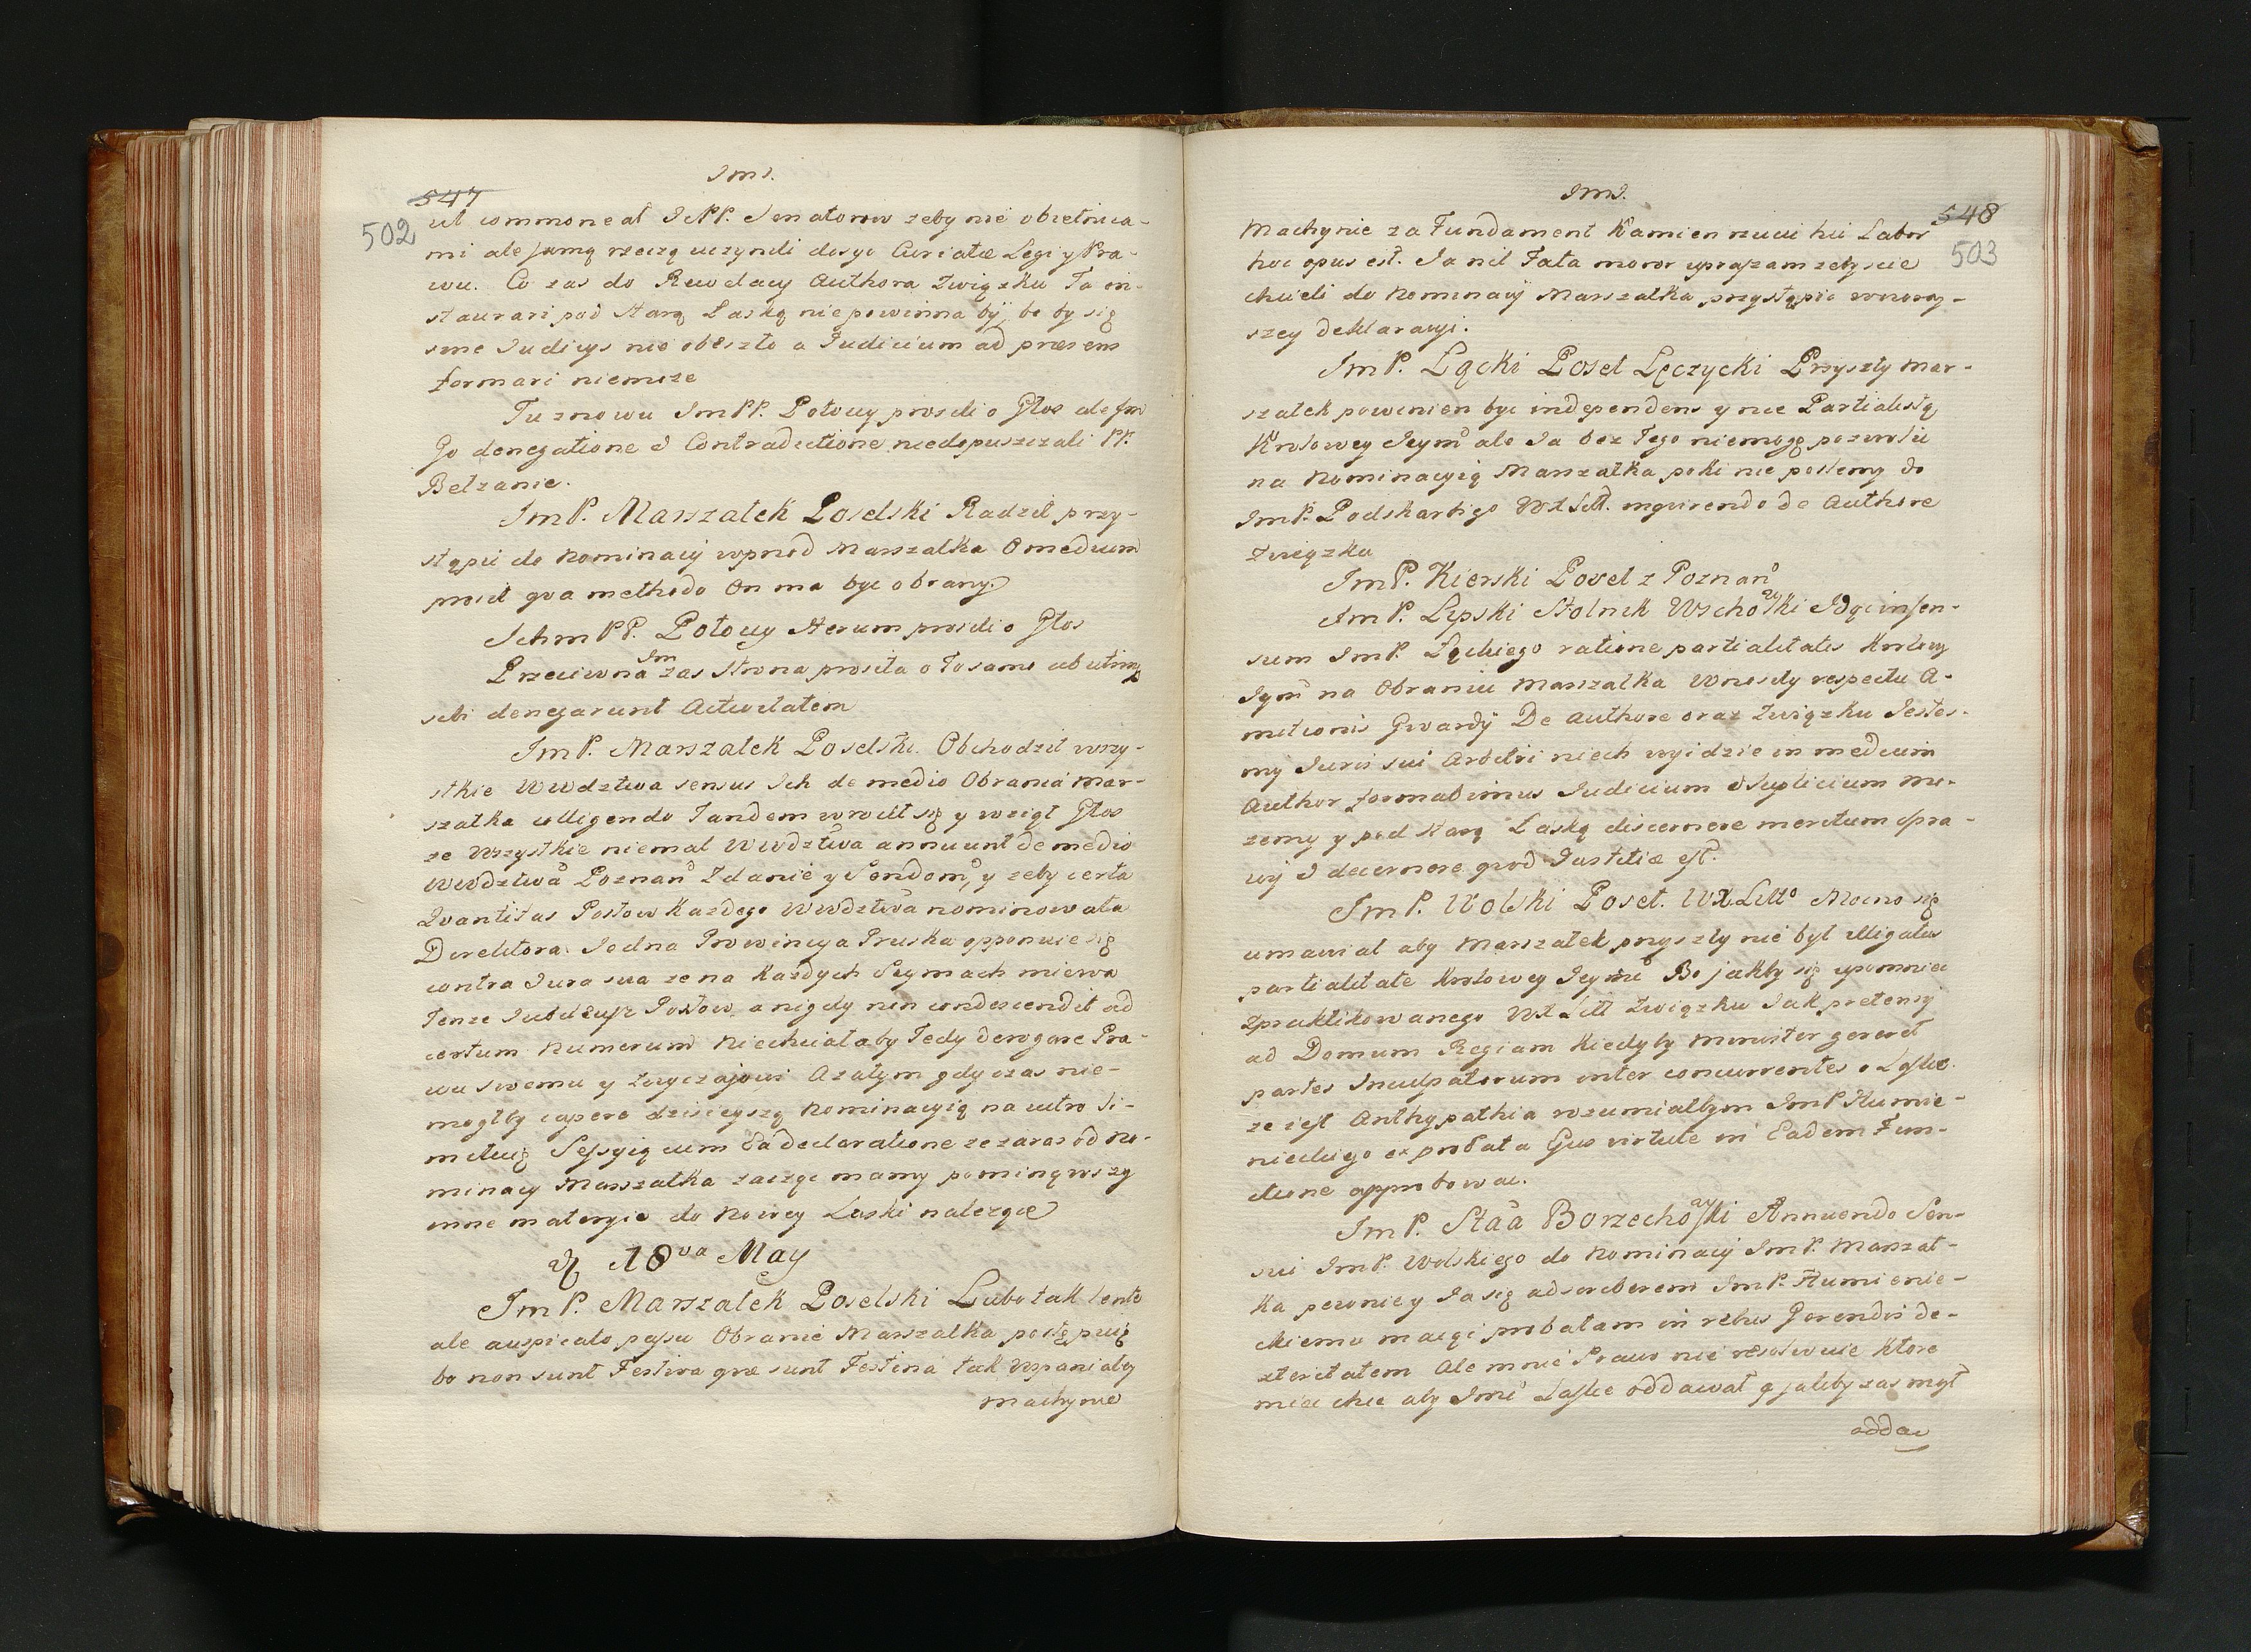 Jms.
547
502
ut commoneat IchPP. Senatorow zeby nie obietnica-
mi ale samą rzeczą uczynili dosyc Curiatæ Legi y Pra-
wu. Co zas do Rewelacy Authora Związku Ta in-
staurari pod Starą Laską nie powinna byj, bo by się
sine Judicys nie obeszło a Judicium ad præsens
formari niemoze
Tu znowu ImPP. Potoccy prosili o Głos ale
Go denegatione & Contradictione niedopuszczali PP.
Bełzanie.
ImP. Marszałek Poselski Radził przy-
stąpić do Nominacij wprzod Marszałka O medium
prosił qua methodo On ma byc obrany.
IchmPP. Potoccy iterum prosili o Głos
Przeciwna Im zas Strona prosiła o to samo
sibi denegarunt Activitatem
ImP. Marszałek Poselski. Obchodził wszy-
stkie Wwdztwa sensus Ich de medio Obrania Mar-
szałka colligendo Tandem wrocił się y wziął Głos
ze Wszystkie niemal Wwdztwa annuunt de medio
Wwdztwa Poznan Zdanie y Sendom, y zeby certa
Quantitas Posłow Kazdego Wwdztwa nominowała
Direktora. Jedna Prowincya Pruska opponuie się
contra Jura sua ze na Kazdych Seymach miewa
Tenze Posłow a nigdy non condescendit ad
certum Numerum Niechciałaby Tedy derogare Pra-
wu swemu y Zwyczajowi Azatym gdy czas nie-
mogłby capere dzisieyszą Nominacyią na iutro li-
mituię Sessyią cum Ea declaratione ze zaraz od No-
minacy Marszałka zacząc mamy pominąwszy
inne materyie do Nowey Laski nalezące
♃ 18va May
ImP. Marszałek Poselski Lubo tak lente
ale auspicato passu Obranie Marszałka postępuię
bo non sunt Festiva quæ sunt Festina tak wspaniałey
machynie
Jms.
548
503
Machynie za Fundament Kamien rzucić hic Labor
hoc opus est. Ja nil Fata moror upraszam zebyscie
chcieli do Nominacij Marszałka przystąpic wczoray-
szey deklaracyi.
ImP. Łącki Poseł Łęczycki Przyszły Mar-
szałek powinien byc independens y nie Partialistą
Krolowey Jeym ale Ja bez Tego niemogę pozwolić
na Nominacyią Marszałka poki nie poslemy do
ImP. Podskarbigo WXLitt. inquirendo de Authore
Związku
ImP. Kierski Poseł z Poznan
ImP. Lipski Stolnik Wschowski Idąc in sen-
sum ImP. Łąckiego ratione partialitatis Krolowy
Jeym na Obraniu Marszałka Wnosiły respectu A-
motionis Gwardij De authore oraz Związku Jestes-
my Juris sui Arbitri niech wyidzie in medium
Author formabimus Judicium & Suplicium mo-
zemy y pod Starą Laską discernere meritum spra-
wy & decernere quod Justitiæ est.
ImP. Wolski Poseł. WX.Litto Mocno się
umawiał aby Marszałek przyszły nie był illigatus
partialitate Krolowey Jeymci Bo jakby się upomniec
Zpraktikowanego WXLitt Związku Jak pretensij
ad Domum Regiam Kiedyby Minister gereret
partes Inculpatorum inter concurrentes o Laskę
ze iest Anthypathia rozumiałbym ImP Humie-
nieckiego ex probata Eius virtute in Eadem Fun-
ctione approbowac.
ImP. Staa Borzechowski Annuendo Sen-
sui ImP. Wolskiego do Nominacij ImP. Marszał-
ka pewniey Ja się adscriberem ImP. Humienie-
ckiemu maiąc probatam in rebus Gerendis de-
xteritatem Ale mnie Prawo nie resolwuie Ktore
miec chce aby Jmci Laskę oddawał a jakby zas mogł
oddac